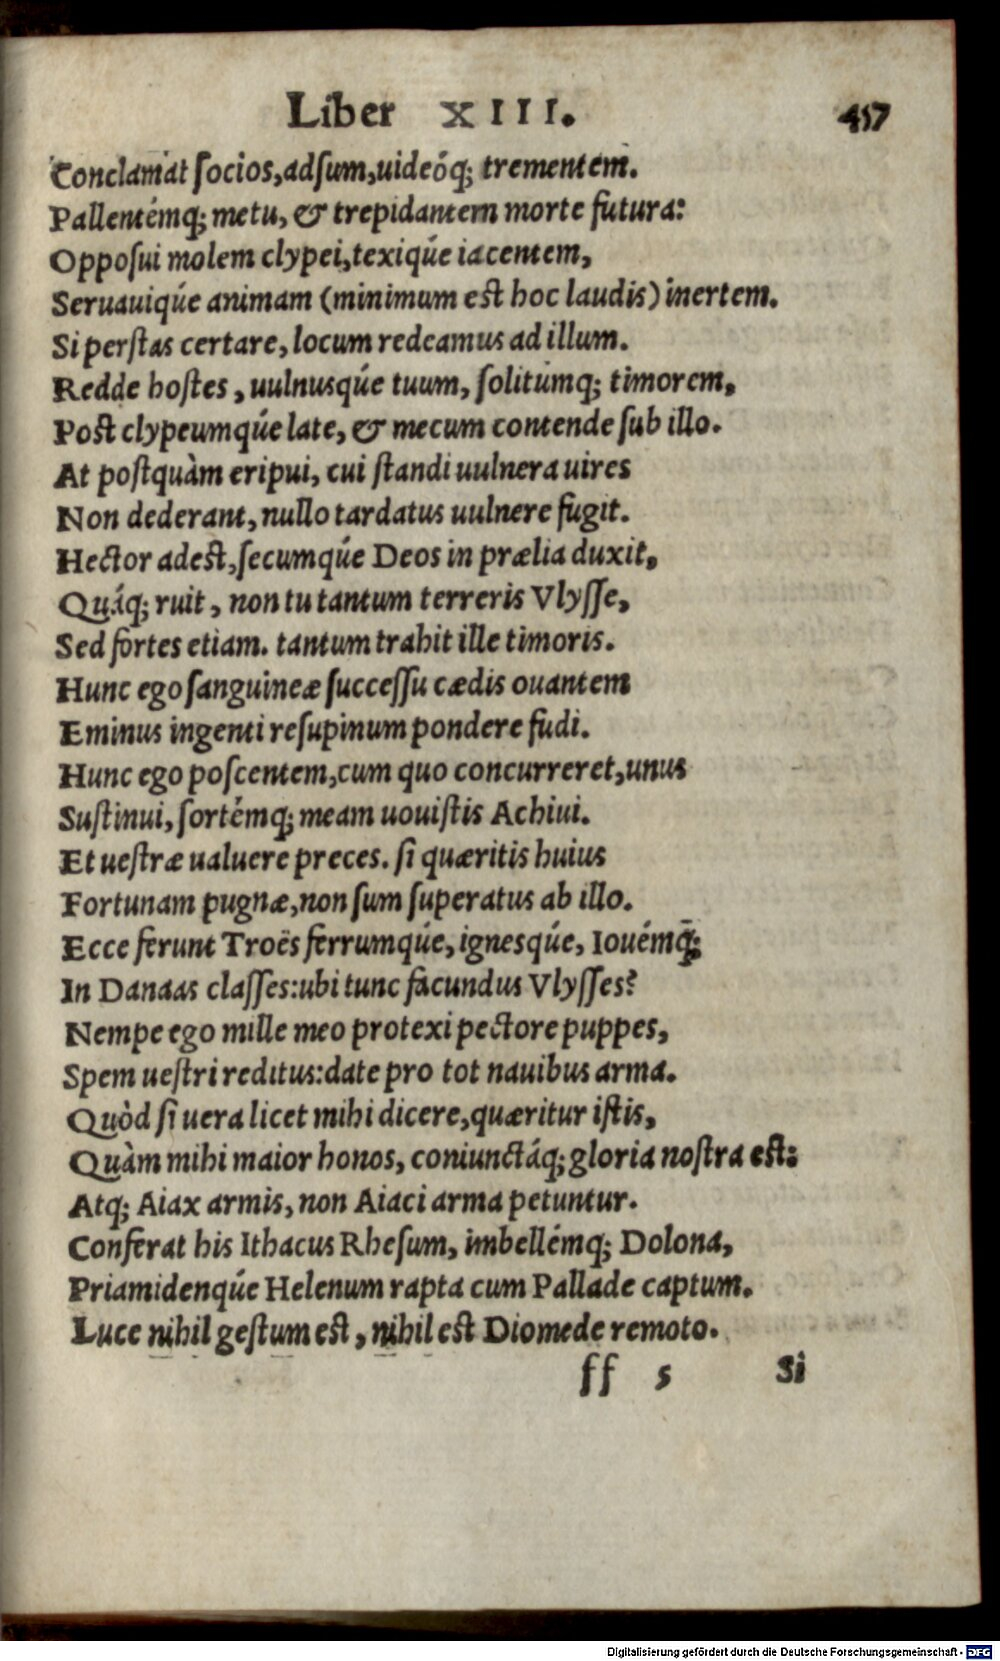 Liber XIII. 457
Conclamat ſocios,adſum,uideóq; trementem.
Pallentémq; metu, & trepidantem morte futura:
Oppoſui molem clypei,texiqúe iacentem,
Seruauiqúe animam (minimum est hoc laudis) inertem.
Si perſtas certare, locum redeamus ad illum.
Redde hoſtes, uulnusqúe tuum, ſolitúmq; timorem,
Post clypeumqúe late, & mecum contende ſub illo.
At poſtquàm eripui, cui ſtandi uulnera uires
Non dederant, nullo tardatus uulnere fugit.
Hector adest, ſecumqúe Deos in prælia duxit,
Quáq; ruit, non tu tantum terreris Vlyſſe,
Sed fortes etiam. tantum trahit ille timoris.
Hunc ego ſanguineæ ſucceſſu cædis ouantem
Eminus ingenti reſupinum pondere fudi.
Hunc ego poſcentem,cum quo concurreret,unus
Suſtinui, ſortémq; meam uouiſtis Achiui.
Et ueſtræ ualuere preces. ſi quæritis huius
Fortunam pugnæ,non ſum ſuperatus ab illo.
Ecce ferunt Troës ferrumqúe, ignesqúe, Iouémq;
In Danaas claſſes:ubi tunc facundus Vlyſſes?
Nempe ego mille meo protexi pectore puppes,
Spem ueſtri reditus:date pro tot nauibus arma.
Quòd ſi uera licet mihi dicere,quæritur iſtis,
Quàm mihi maior honos, coniunctáq; gloria noſtra est:
Atq; Aiax armis, non Aiaci arma petuntur.
Conferat his Ithacus Rheſum, imbellémq; Dolona,
Priamidenqúe Helenum rapta cum Pallade captum.
Luce nihil geſtum est, nihil est Diomede remoto.
ſſ 5 Si
Digitalisierung gefördert durch die Deutsche Forschungsgemeinschaft - DFG